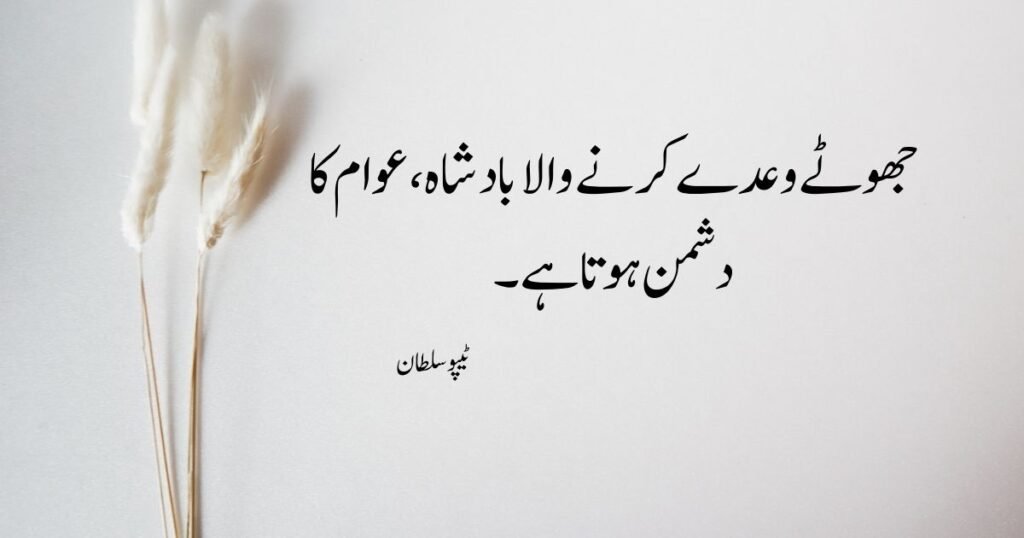 جھوٹے وعدے کرنے والا بادشاہ، عوام کا
دشمن ہوتا ہے۔
ٹیپو سلطان